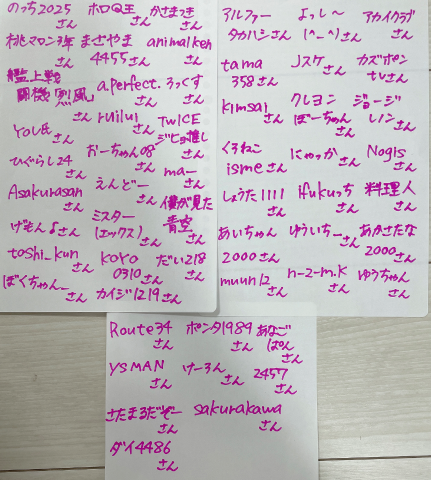 のっち2025さん ホロQ王さん かさまっきさん
桃マロン3年さん まさやま4455さん animalkenさん
艦上戦闘機「烈風」さん a.perfect.さん ろっくすさん
You氏さん ruiluiさん TWICEジヒョ推しさん
ひぐらし24さん おーちゃん08さん ma-さん
Asakurasan えんどーさん 僕が見た青空さん
げもん♪さん ミスター(エックス)さん
toshi_kunさん koro0310さん だい218さん
ぼくちゃん_さん カイジ1219さん
アルファータカハシさん よっし〜(^-^)さん アカイクラブさん
tama358さん Jスケさん カズポンtvさん
kimsaiさん クレヨンぼーちゃんさん ジョージレノンさん
くろねこismeさん にゃっかさん Nogisさん
しょうた1111さん ifukuっちさん 料理人さん
あいちゃん2000さん ゆういちーさん あかさたな2000さん
muun12さん n-2-m.kさん ゆうちゃんさん
Route34さん ポンタ1989さん あなごぱんさん
YSMANさん けーろんさん 2457さん
さたまるだぞーさん sakurakawaさん
ダイ4486さん